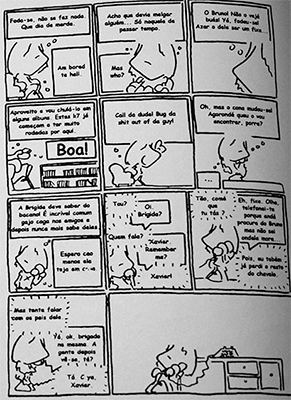 Foda-se, não se faz nada.
Que dia de merda.
Am bored
to hell.
Acho que devia melgar
alguém... Só naquela de
passar tempo.
Man
who?
O Bruno! Não o vejo
buéa! Yá, fodeu-se!
Azar o dele ser um fixe.
Aproveito e vou chulá-lo em
alguns albuns. Estas k7 já
começam a ter muito
rodadas por aqui.
Boa!
Call da dude! Bug da
shit out of da guy!
Oh, mas o cona mudou-se!
Agorandé queu o vou
encontrar, porra?
...
A Brigida deve saber do
bacano! É incrível comum
gajo caga nos amigos e
depois nunca mais sabe deles
Espero cao
menos ela
teja em
Tou?
Oi.
Brigida?
Quem fala?
Xavier.
Remember
me?
Xavier!
Tão, comé
que
tu tás?
Eh, fixe. Olha,
telefonei-te
porque andó
procura do Bruno
mas não sei
ondele more.
Pois, eu também
já perdi o resto
do chavalo.
Mas tenta falar
com os pais dele.
Yá, ok, brigado
na mesma. A
gente depois
vê-se, tá?
Tá. C'ya,
Xavier.